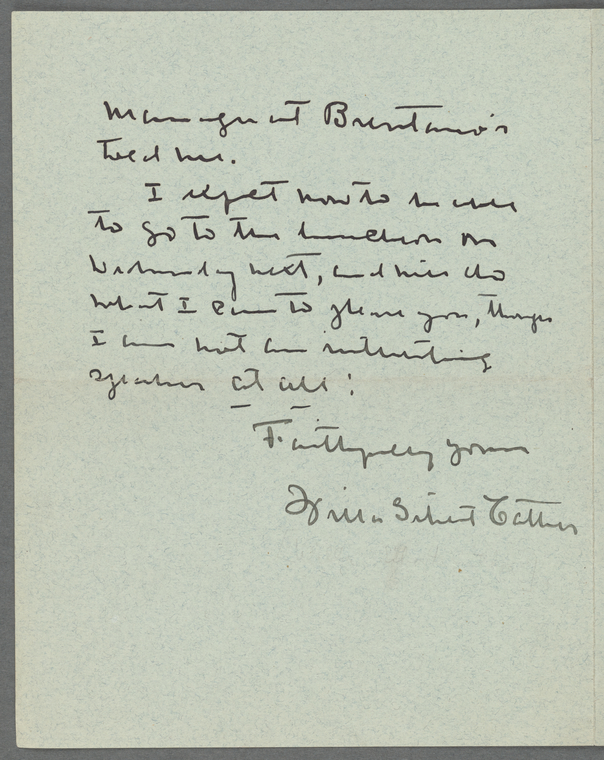 Manager at Brentano's
told me.
I expect now to be able
to go to the luncheon on
Wednesday next, and will do
what I can to please you, though
I am not an interesting
speaker at all!
Faithfully yours
Willa Sibert Cather